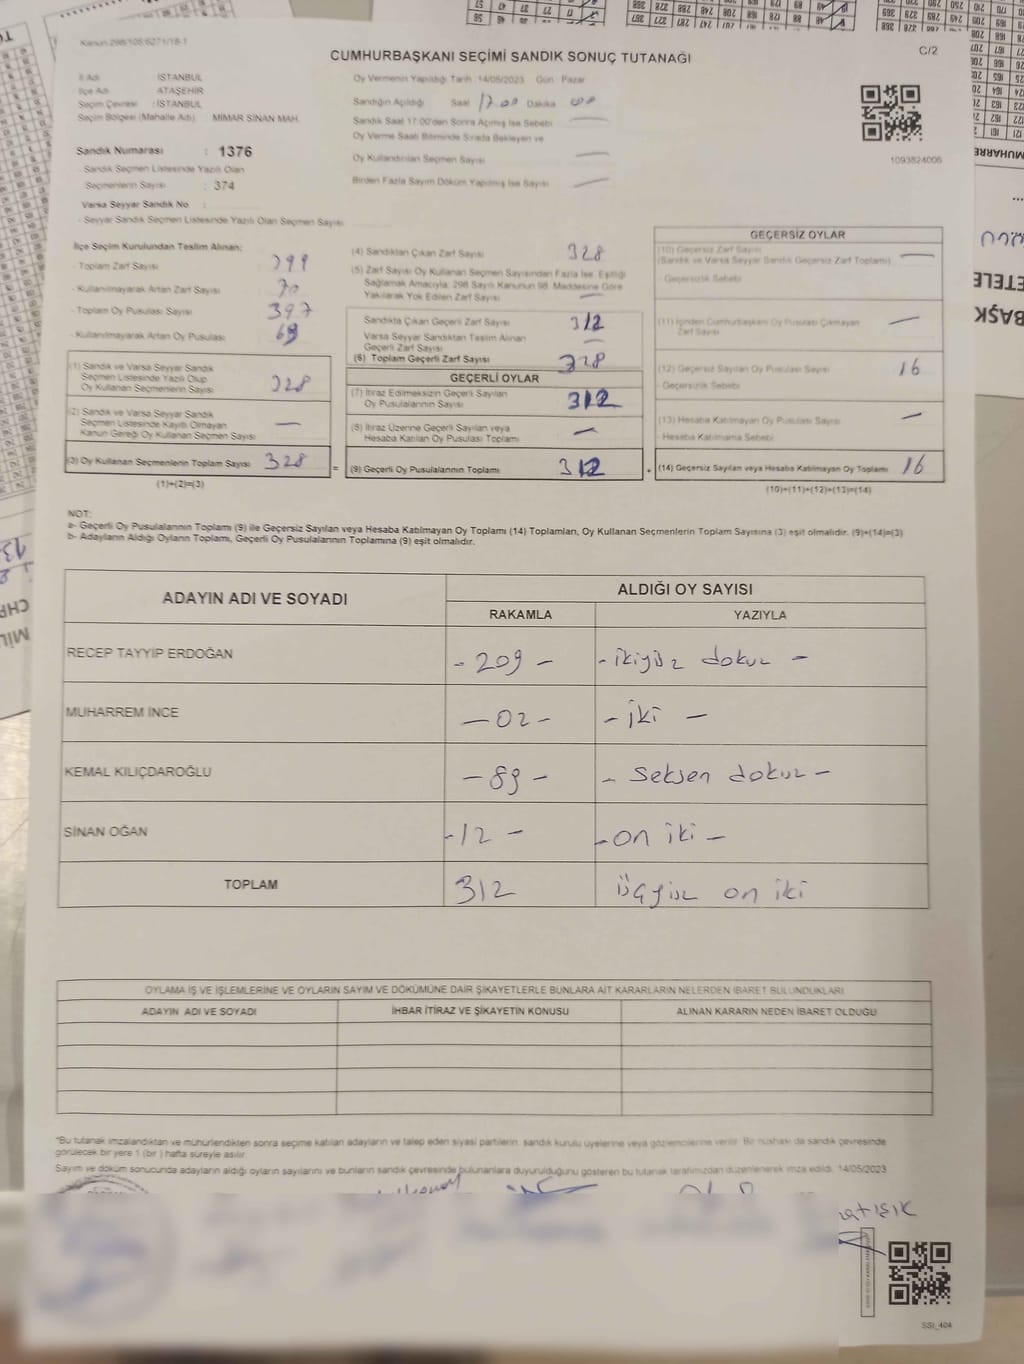 Kanun 298/105.6271/18-1
CUMHURBAŞKANI SEÇİMİ SANDIK SONUÇ TUTANAĞI
C/2
İl Adı İSTANBUL
İlçe Adı ATAŞEHİR
Seçim Çevresi : İSTANBUL
Seçim Bölgesi (Mahalle Adı) MİMAR SİNAN MAH.
Sandık Numarası : 1376
- Sandık Seçmen Listesinde Yazılı Olan
Seçmenlerin Sayısı : 374
Varsa Seyyar Sandık No :
- Seyyar Sandık Seçmen Listesinde Yazılı Olan Seçmen Sayısı
Oy Vermenin Yapıldığı Tarih :14/05/2023 Gün Pazar
Sandığın Açıldığı Saat 17.00 Dakika 00
Sandık Saat 17:00'den Sonra Açılmış İse Sebebi —
Oy Verme Saati Bitiminde Sırada Bekleyen ve
Oy Kullandırılan Seçmen Sayısı —
Birden Fazla Sayım Döküm Yapılmış İse Sayısı —
1093824006
İlçe Seçim Kurulundan Teslim Alınan;
- Toplam Zarf Sayısı 399
- Kullanılmayarak Artan Zarf Sayısı 70
- Toplam Oy Pusulası Sayısı 397
- Kullanılmayarak Artan Oy Pusulası 69
(1) Sandık ve Varsa Seyyar Sandık
Seçmen Listesinde Yazılı Olup
Oy Kullanan Seçmenlerin Sayısı 328
(2) Sandık ve Varsa Seyyar Sandık
Seçmen Listesinde Kayıtlı Olmayan
Kanun Gereği Oy Kullanan Seçmen Sayısı —
(3) Oy Kullanan Seçmenlerin Toplam Sayısı 328
(1)+(2)=(3)
(4) Sandıktan Çıkan Zarf Sayısı 328
(5) Zarf Sayısı Oy Kullanan Seçmen Sayısından Fazla İse, Eşitliği
Sağlamak Amacıyla; 298 Sayılı Kanunun 98. Maddesine Göre
Yakılarak Yok Edilen Zarf Sayısı —
Sandıkta Çıkan Geçerli Zarf Sayısı 312
Varsa Seyyar Sandıktan Teslim Alınan
Geçerli Zarf Sayısı —
(6) Toplam Geçerli Zarf Sayısı 328
GEÇERLİ OYLAR
(7) İtiraz Edilmeksizin Geçerli Sayılan
Oy Pusulalarının Sayısı 312
(8) İtiraz Üzerine Geçerli Sayılan veya
Hesaba Katılan Oy Pusulası Toplamı —
= (9) Geçerli Oy Pusulalarının Toplamı 312
GEÇERSİZ OYLAR
(10) Geçersiz Zarf Sayısı
(Sandık ve Varsa Seyyar Sandık Geçersiz Zarf Toplamı) —
- Geçersizlik Sebebi
(11) İçinden Cumhurbaşkanı Oy Pusulası Çıkmayan
Zarf Sayısı —
(12) Geçersiz Sayılan Oy Pusulası Sayısı 16
- Geçersizlik Sebebi
(13) Hesaba Katılmayan Oy Pusulası Sayısı —
- Hesaba Katılmama Sebebi
+ (14) Geçersiz Sayılan veya Hesaba Katılmayan Oy Toplamı 16
(10)+(11)+(12)+(13)=(14)
NOT:
a- Geçerli Oy Pusulalarının Toplamı (9) ile Geçersiz Sayılan veya Hesaba Katılmayan Oy Toplamı (14) Toplamları, Oy Kullanan Seçmenlerin Toplam Sayısına (3) eşit olmalıdır. (9)+(14)=(3)
b- Adayların Aldığı Oyların Toplamı, Geçerli Oy Pusulalarının Toplamına (9) eşit olmalıdır.
ADAYIN ADI VE SOYADI
ALDIĞI OY SAYISI
RAKAMLA YAZIYLA
RECEP TAYYİP ERDOĞAN - 209 - - ikiyüz dokuz -
MUHARREM İNCE - 02 - - iki -
KEMAL KILIÇDAROĞLU - 89 - - Seksen dokuz -
SİNAN OĞAN - 12 - - on iki -
TOPLAM 312 üçyüz on iki
OYLAMA İŞ VE İŞLEMLERİNE VE OYLARIN SAYIM VE DÖKÜMÜNE DAİR ŞİKAYETLERLE BUNLARA AİT KARARLARIN NELERDEN İBARET BULUNDUKLARI
ADAYIN ADI VE SOYADI İHBAR İTİRAZ VE ŞİKAYETİN KONUSU ALINAN KARARIN NEDEN İBARET OLDUĞU
*Bu tutanak imzalandıktan ve mühürlendikten sonra seçime katılan adayların ve talep eden siyasi partilerin, sandık kurulu üyelerine veya gözlemcilerine verilir. Bir nüshası da sandık çevresinde
görülecek bir yere 1 (bir) hafta süreyle asılır.
Sayım ve döküm sonucunda adayların aldığı oyların sayılarını ve bunların sandık çevresinde bulunanlara duyurulduğunu gösteren bu tutanak tarafımızdan düzenlenerek imza edildi. 14/05/2023
SSI_404